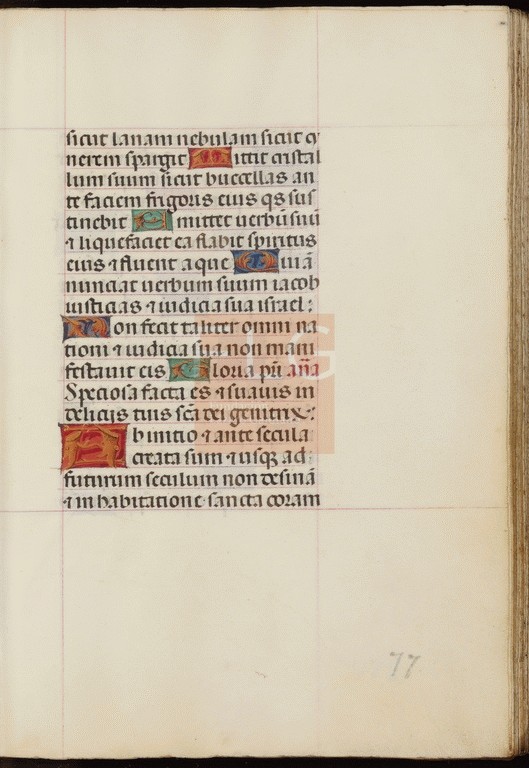 sicut lanam nebulam sicut ci
nerem spargit Mittit cristal
lum suum sicut buccellas an
te faciem frigoris eius qs sus
tinebit Emittet uerbū suū
⁊ liquefaciet ea flabit spiritus
eius ⁊ fluent aque Qui ā
nunciat uerbum suum iacob
iusticias ⁊ iudicia sua israel:
Non fecit taliter omni na
tioni ⁊ iudicia sua non mani
festauit eis Gloria pr̄i añā
Speciosa facta es ⁊ suauis in
delicijs tuis sc̄a dei genitrix:
Ab initio ⁊ ante secula
creata sum ⁊ usqȝ ad
futurum seculum non desinā
⁊ in habitatione sancta coram
77